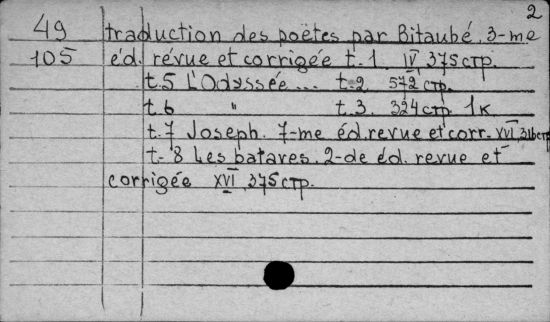 2
49 traduction des poëtes par Bitaubé, 3-me
105 éd. révue et corrigée t.1. IV 375 стр.
t.5 L'Odyssée... t.2 572 стр.
t.6 " t.3. 324 стр. 1к
t.7 Joseph. 7-me éd. revue et corr. XVI, 316 стр
t.8 Les bataves. 2-de éd. revue et
corrigée XVI, 375 стр.